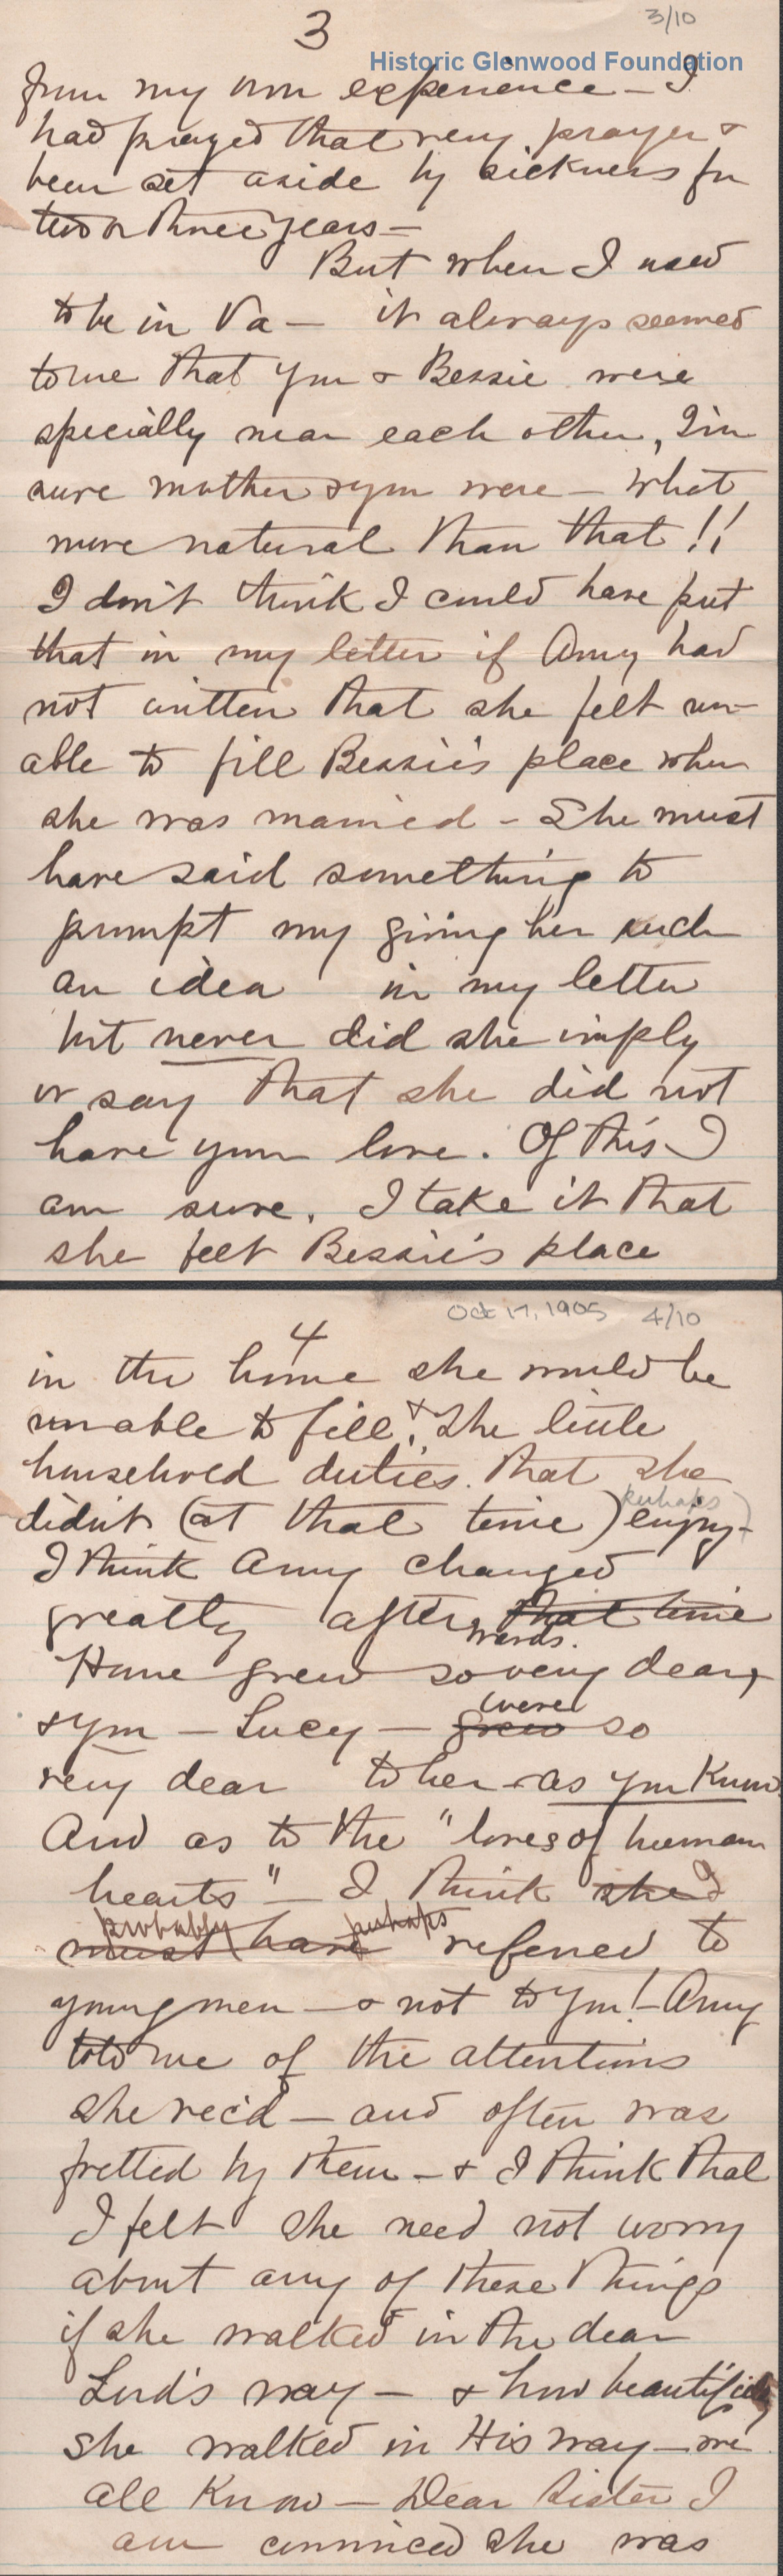 3
3/10
Historic Glenwood Foundation
from my own experience — I
had prayed that very prayer &
been set aside by sickness for
two or three years —
But when I used
to be in Va — it always seemed
to me that you & Bessie were
specially near each other, I'm
sure mother & you were — What
more natural than that !!
I don't think I could have put
that in my letter if Amy had
not written that she felt un-
able to fill Bessie's place when
she was married - She must
have said something to
prompt my giving her such
an idea in my letter
but never did she imply
or say that she did not
have your love. Of this I
am sure. I take it that
she felt Bessie's place
Oct 17, 1905 4/10
4
in the home she would be
unable to fill, & the little
household duties that she
perhaps
didn't (at that time) enjoy -
I think Amy changed
greatly after that time
wards.
Home grew so very dear,
were
& you — Lucy — grew so
very dear to her - as you know
And as to the "loves of human
hearts" — I think she I
probably perhaps
must have referred to
young men — & not to you! — Amy
told me of the attentions
she rec'd — and often was
fretted by them — & I think that
I felt she need not worry
about any of these things
if she walked in the dear
Lord's way — & how beautifully
she walked in His way — we
all know — Dear Sister I
am convinced she was